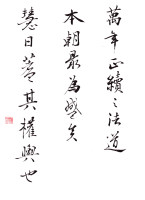 萬年正續之法道
本朝最為盛矣
慧日蓋其權輿也